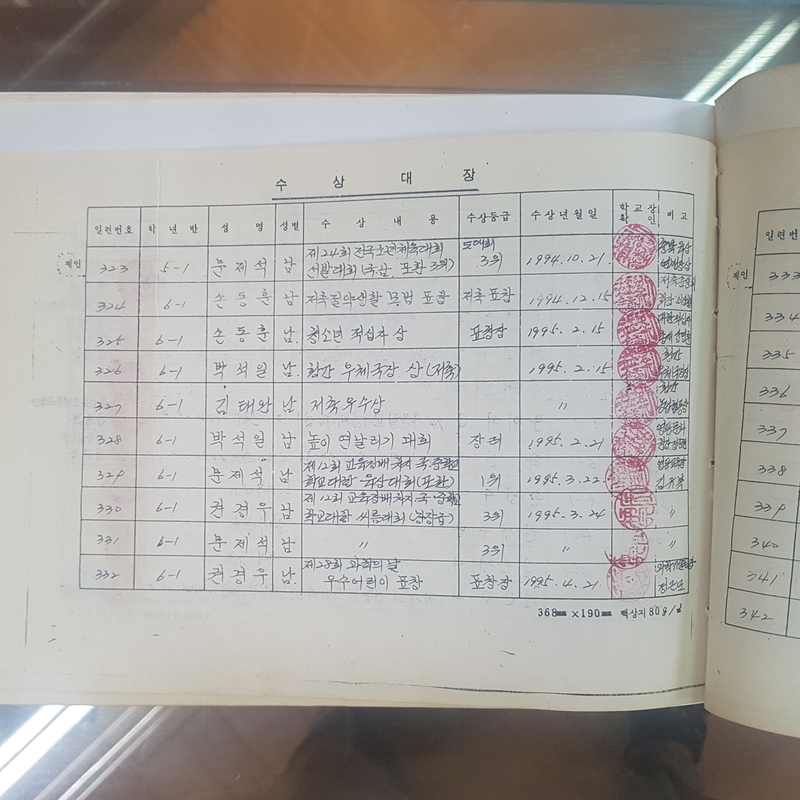 수 상 대 장
일련번호 학 년 반 성 명 성별 수 상 내 용 수상등급 수 상 년 월 일 학 교 장 확 인 비 고
계인 323 5-1 문 제 석 남 제24회 전국소년체육대회 도대회 1994. 10. 21.
선발대회 (육상, 포환 3위) 3위
324 6-1 손 동 훈 남 저축절약생활 모범 표창 저축 표창 1994. 12. 15
325 6-1 손 동 훈 남. 청소년 적십자 상 표창장 1995. 2. 15 대한적십자
326 6-1 박 석 일 남. 황간 우체국장 상 (저축) 1995. 2. 15 황간
우체국장
327 6-1 김 태 완 남 저축 우수상 〃 황간
328 6-1 박 석 일 남 높이 연날리기 대회 장려 1995. 2. 21
329 6-1 문 제 석 남. 제12회 교육장배 차지 국·중학교
학교대항 육상대회 (포환) 1위 1995. 3. 22
330 6-1 권 경 우 남 제12회 교육장배 차지 국·중학교
학교대항 씨름대회 3위 1995. 3. 24 〃
331 6-1 문 제 석 남 〃 3위 〃 〃
332 6-1 권 경 우 남. 제28회 과학의 날
우수어린이 표창 표창장 1995. 4. 21
368㎜ ×190㎜ 백상지 80g/㎡
일련번
계인 333
334
335
336
337
338
339
340
341
342